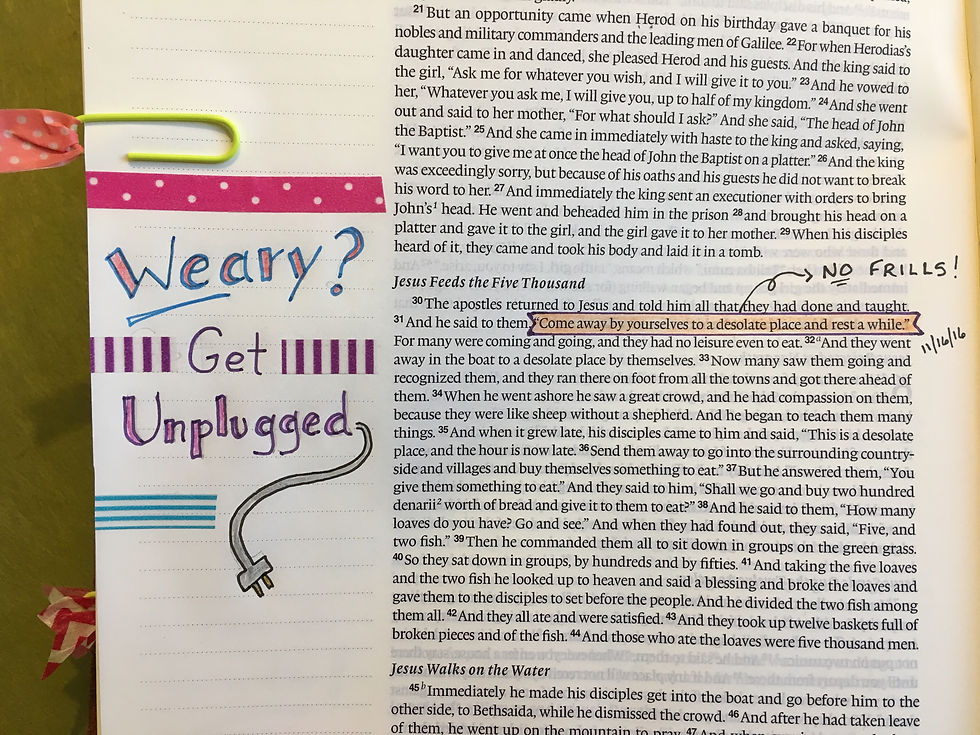 Weary?
Get
Unplugged
21 But an opportunity came when Herod on his birthday gave a banquet for his
nobles and military commanders and the leading men of Galilee. 22 For when Herodias's
daughter came in and danced, she pleased Herod and his guests. And the king said to
the girl, “Ask me for whatever you wish, and I will give it to you.” 23 And he vowed to
her, “Whatever you ask me, I will give you, up to half of my kingdom.” 24 And she went
out and said to her mother, “For what should I ask?” And she said, “The head of John
the Baptist.” 25 And she came in immediately with haste to the king and asked, saying,
“I want you to give me at once the head of John the Baptist on a platter.” 26 And the king
was exceedingly sorry, but because of his oaths and his guests he did not want to break
his word to her. 27 And immediately the king sent an executioner with orders to bring
John's1 head. He went and beheaded him in the prison 28 and brought his head on a
platter and gave it to the girl, and the girl gave it to her mother. 29 When his disciples
heard of it, they came and took his body and laid it in a tomb.
NO FRILLS!
Jesus Feeds the Five Thousand
30 The apostles returned to Jesus and told him all that they had done and taught.
31 And he said to them, “Come away by yourselves to a desolate place and rest a while.”
11/16/16
For many were coming and going, and they had no leisure even to eat. 32 a And they went
away in the boat to a desolate place by themselves. 33 Now many saw them going and
recognized them, and they ran there on foot from all the towns and got there ahead of
them. 34 When he went ashore he saw a great crowd, and he had compassion on them,
because they were like sheep without a shepherd. And he began to teach them many
things. 35 And when it grew late, his disciples came to him and said, “This is a desolate
place, and the hour is now late. 36 Send them away to go into the surrounding country-
side and villages and buy themselves something to eat.” 37 But he answered them, “You
give them something to eat.” And they said to him, “Shall we go and buy two hundred
denarii2 worth of bread and give it to them to eat?” 38 And he said to them, “How many
loaves do you have? Go and see.” And when they had found out, they said, “Five, and
two fish.” 39 Then he commanded them all to sit down in groups on the green grass.
40 So they sat down in groups, by hundreds and by fifties. 41 And taking the five loaves
and the two fish he looked up to heaven and said a blessing and broke the loaves and
gave them to the disciples to set before the people. And he divided the two fish among
them all. 42 And they all ate and were satisfied. 43 And they took up twelve baskets full of
broken pieces and of the fish. 44 And those who ate the loaves were five thousand men.
Jesus Walks on the Water
45 b Immediately he made his disciples get into the boat and go before him to the
other side, to Bethsaida, while he dismissed the crowd. 46 And after he had taken leave
of them, he went up on the mountain to pray. 47 And when